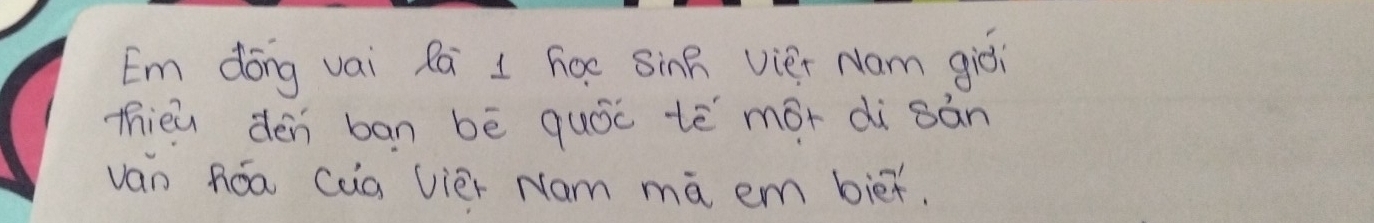 Em đóng vai là 1 học sinh Việt Nam giới
thiệu đến bạn bè quốc tế một di sản
văn hóa của Việt Nam mà em biết.